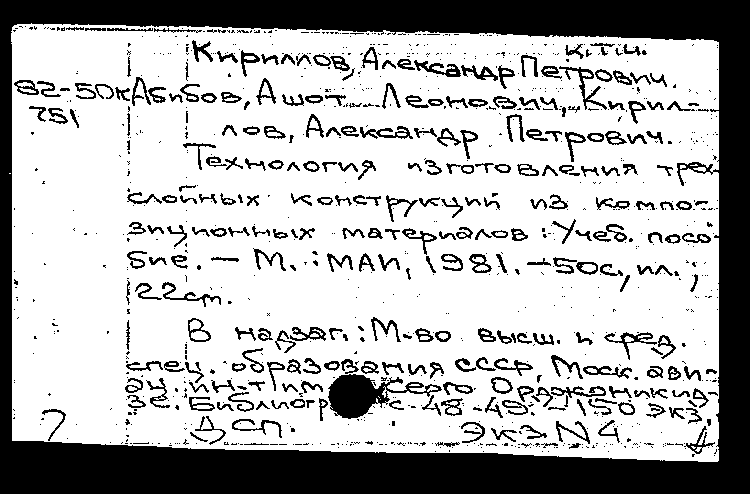 к.т.н.
Кириллов, Александр Петрович.
82-50к Абибов, Ашот Леонович, Кирил-
251 лов, Александр Петрович.
Технология изготовления трех-
слойных конструкций из компо-
зиционных материалов : Учеб. посо-
бие. — М. : МАИ, 1981. — 50с., ил. ;
22 см.
В надзаг. : М-во высш. и сред.
спец. образования СССР, Моск. ави-
ац. ин-т им Серго Орджоникид-
зе. Библиогр с. 48-49. — 150 экз.
ДСП. Экз. N 4.